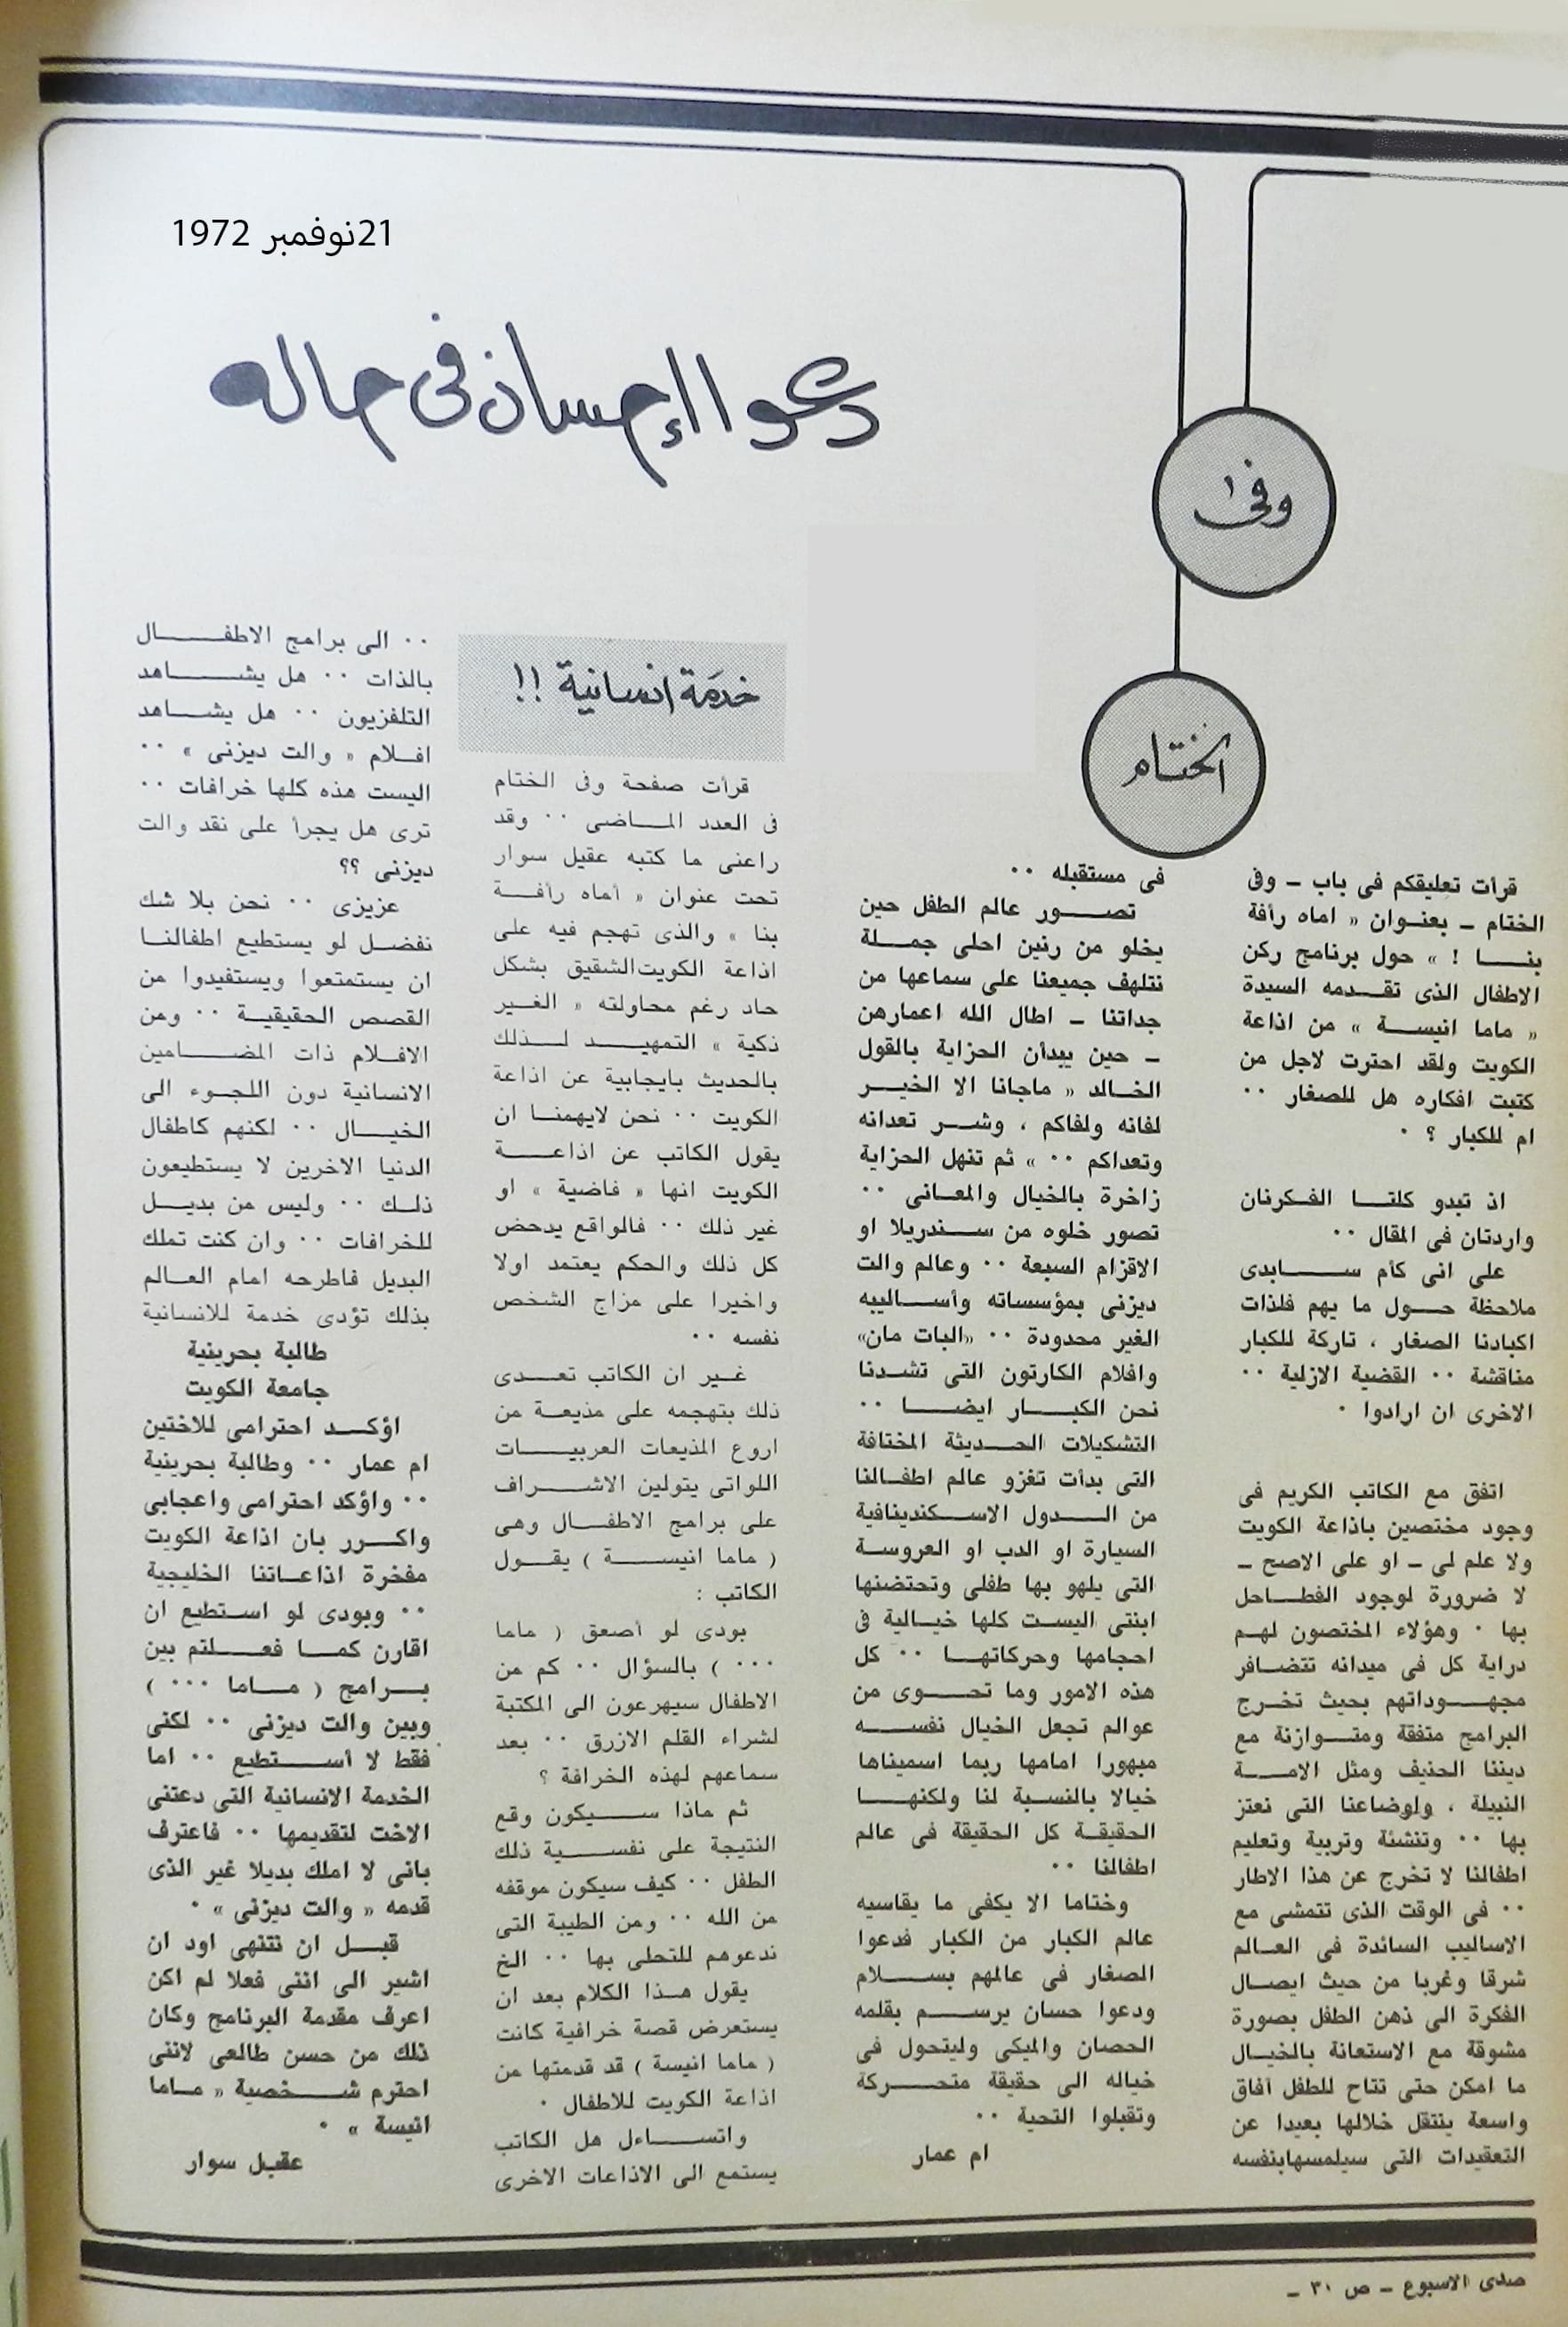 21نوفمبر 1972
دعوا الإحسان فى حاله
وفى
الختام
قرأت تعليقكم فى باب ـ وفى
الختام ـ بعنوان « اماه رأفة
بنا ! » حول برنامج ركن
الاطفال الذى تقدمه السيدة
« ماما انيسة » من اذاعة
الكويت ولقد احترت لاجل من
كتبت افكاره هل للصغار ..
ام للكبار ؟ .
اذ تبدو كلتا الفكرتان
واردتان فى المقال ..
على انى كأم سابدى
ملاحظة حول ما يهم فلذات
اكبادنا الصغار ، تاركة للكبار
مناقشة .. القضية الازلية ..
الاخرى ان ارادوا .
اتفق مع الكاتب الكريم فى
وجود مختصين باذاعة الكويت
ولا علم لى ـ او على الاصح ـ
لا ضرورة لوجود الفطاحل
بها . وهؤلاء المختصون لهم
دراية كل فى ميدانه تتضافر
مجهوداتهم بحيث تخرج
البرامج متفقة ومتوازنة مع
ديننا الحنيف ومثل الامة
النبيلة ، ولوضاعنا التى نعتز
بها .. وتنشئة وتربية وتعليم
اطفالنا لا تخرج عن هذا الاطار
.. فى الوقت الذى تتمشى مع
الاساليب السائدة فى العالم
شرقا وغربا من حيث ايصال
الفكرة الى ذهن الطفل بصورة
مشوقة مع الاستعانة بالخيال
ما امكن حتى تتاح للطفل آفاق
واسعة ينتقل خلالها بعيدا عن
التعقيدات التى سيلمسهابنفسه
فى مستقبله ..
تصور عالم الطفل حين
يخلو من رنين احلى جملة
نتلهف جميعنا على سماعها من
جداتنا ـ اطال الله اعمارهن
ـ حين يبدأن الحزاية بالقول
الخالد « ماجانا الا الخير
لفانه ولفاكم ، وشر تعدانه
وتعداكم .. » ثم تنهل الحزاية
زاخرة بالخيال والمعانى ..
تصور خلوه من سندريلا او
الاقزام السبعة .. وعالم والت
ديزنى بمؤسساته وأساليبه
الغير محدودة .. «البات مان»
وافلام الكارتون التى تشدنا
نحن الكبار ايضا ..
التشكيلات الحديثة المختافة
التى بدأت تغزو عالم اطفالنا
من الدول الاسكندينافية
السيارة او الدب او العروسة
التى يلهو بها طفلى وتحتضنها
ابنتى اليست كلها خيالية فى
احجامها وحركاتها .. كل
هذه الامور وما تحوى من
عوالم تجعل الخيال نفسه
مبهورا امامها ربما اسميناها
خيالا بالنسبة لنا ولكنها
الحقيقة كل الحقيقة فى عالم
اطفالنا ..
وختاما الا يكفى ما يقاسيه
عالم الكبار من الكبار فدعوا
الصغار فى عالمهم بسلام
ودعوا حسان يرسم بقلمه
الحصان والميكى وليتحول فى
خياله الى حقيقة متحركة
وتقبلوا التحية ..
ام عمار
خدمة انسانية !!
قرأت صفحة وفى الختام
فى العدد الماضى .. وقد
راعنى ما كتبه عقيل سوار
تحت عنوان « أماه رأفة
بنا » والذى تهجم فيه على
اذاعة الكويت الشقيق بشكل
حاد رغم محاولته « الغير
ذكية » التمهيد لذلك
بالحديث بايجابية عن اذاعة
الكويت .. نحن لايهمنا ان
يقول الكاتب عن اذاعة
الكويت انها « فاضية » او
غير ذلك .. فالواقع يدحض
كل ذلك والحكم يعتمد اولا
واخيرا على مزاج الشخص
نفسه ..
غير ان الكاتب تعدى
ذلك بتهجمه على مذيعة من
اروع المذيعات العربيات
اللواتى يتولين الاشراف
على برامج الاطفال وهى
( ماما انيسة ) يقول
الكاتب :
بودى لو أصعق ( ماما
... ) بالسؤال .. كم من
الاطفال سيهرعون الى المكتبة
لشراء القلم الازرق .. بعد
سماعهم لهذه الخرافة ؟
ثم ماذا سيكون وقع
النتيجة على نفسية ذلك
الطفل .. كيف سيكون موقفه
من الله .. ومن الطيبة التى
ندعوهم للتحلى بها .. الخ
يقول هذا الكلام بعد ان
يستعرض قصة خرافية كانت
( ماما انيسة ) قد قدمتها من
اذاعة الكويت للاطفال .
واتساءل هل الكاتب
يستمع الى الاذاعات الاخرى
.. الى برامج الاطفال
بالذات .. هل يشاهد
التلفزيون .. هل يشاهد
افلام « والت ديزنى » ..
اليست هذه كلها خرافات ..
ترى هل يجرأ على نقد والت
ديزنى ؟؟
عزيزى .. نحن بلا شك
نفضل لو يستطيع اطفالنا
ان يستمتعوا ويستفيدوا من
القصص الحقيقية .. ومن
الافلام ذات المضامين
الانسانية دون اللجوء الى
الخيال .. لكنهم كاطفال
الدنيا الاخرين لا يستطيعون
ذلك .. وليس من بديل
للخرافات .. وان كنت تملك
البديل فاطرحه امام العالم
بذلك تؤدى خدمة للانسانية
طالبة بحرينية
جامعة الكويت
اؤكد احترامى للاختين
ام عمار .. وطالبة بحرينية
.. واؤكد احترامى واعجابى
واكرر بان اذاعة الكويت
مفخرة اذاعاتنا الخليجية
.. وبودى لو استطيع ان
اقارن كما فعلتم بين
برامج ( ماما ... )
وبين والت ديزنى .. لكنى
فقط لا أستطيع .. اما
الخدمة الانسانية التى دعتنى
الاخت لتقديمها .. فاعترف
بانى لا املك بديلا غير الذى
قدمه « والت ديزنى » .
قبل ان ننتهى اود ان
اشير الى اننى فعلا لم اكن
اعرف مقدمة البرنامج وكان
ذلك من حسن طالعى لاننى
احترم شخصية « ماما
انيسة » .
عقيل سوار
صدى الاسبوع ـ ص ٣٠ ـ